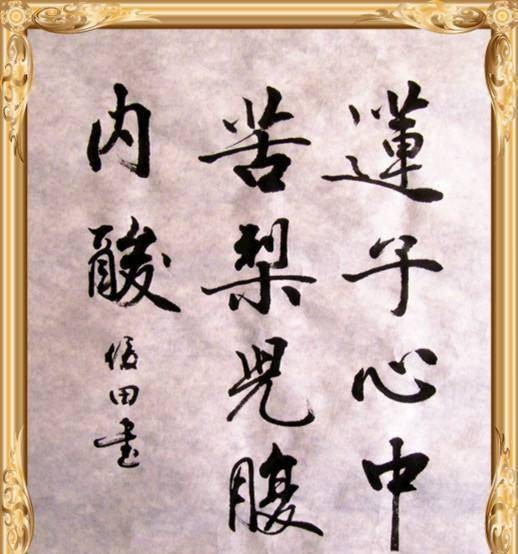 蓮子心中
苦梨兒腹
内酸
田書